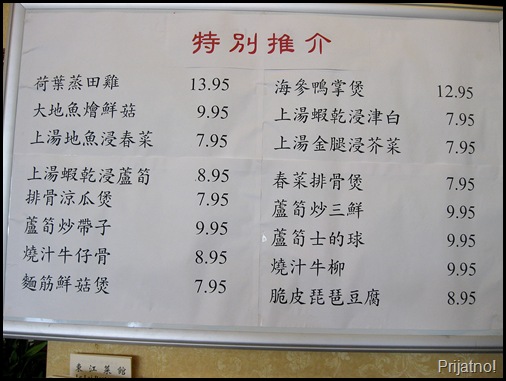 特別推介
荷葉蒸田雞 13.95
大地魚燴鮮菇 9.95
上湯地魚浸春菜 7.95
上湯蝦乾浸蘆筍 8.95
排骨涼瓜煲 7.95
蘆筍炒帶子 9.95
燒汁牛仔骨 8.95
麵筋鮮菇煲 7.95
海參鴨掌煲 12.95
上湯蝦乾浸津白 7.95
上湯金腿浸芥菜 7.95
春菜排骨煲 7.95
蘆筍炒三鮮 9.95
蘆筍士的球 9.95
燒汁牛柳 9.95
脆皮琵琶豆腐 8.95
東江菜館
Prijatno!